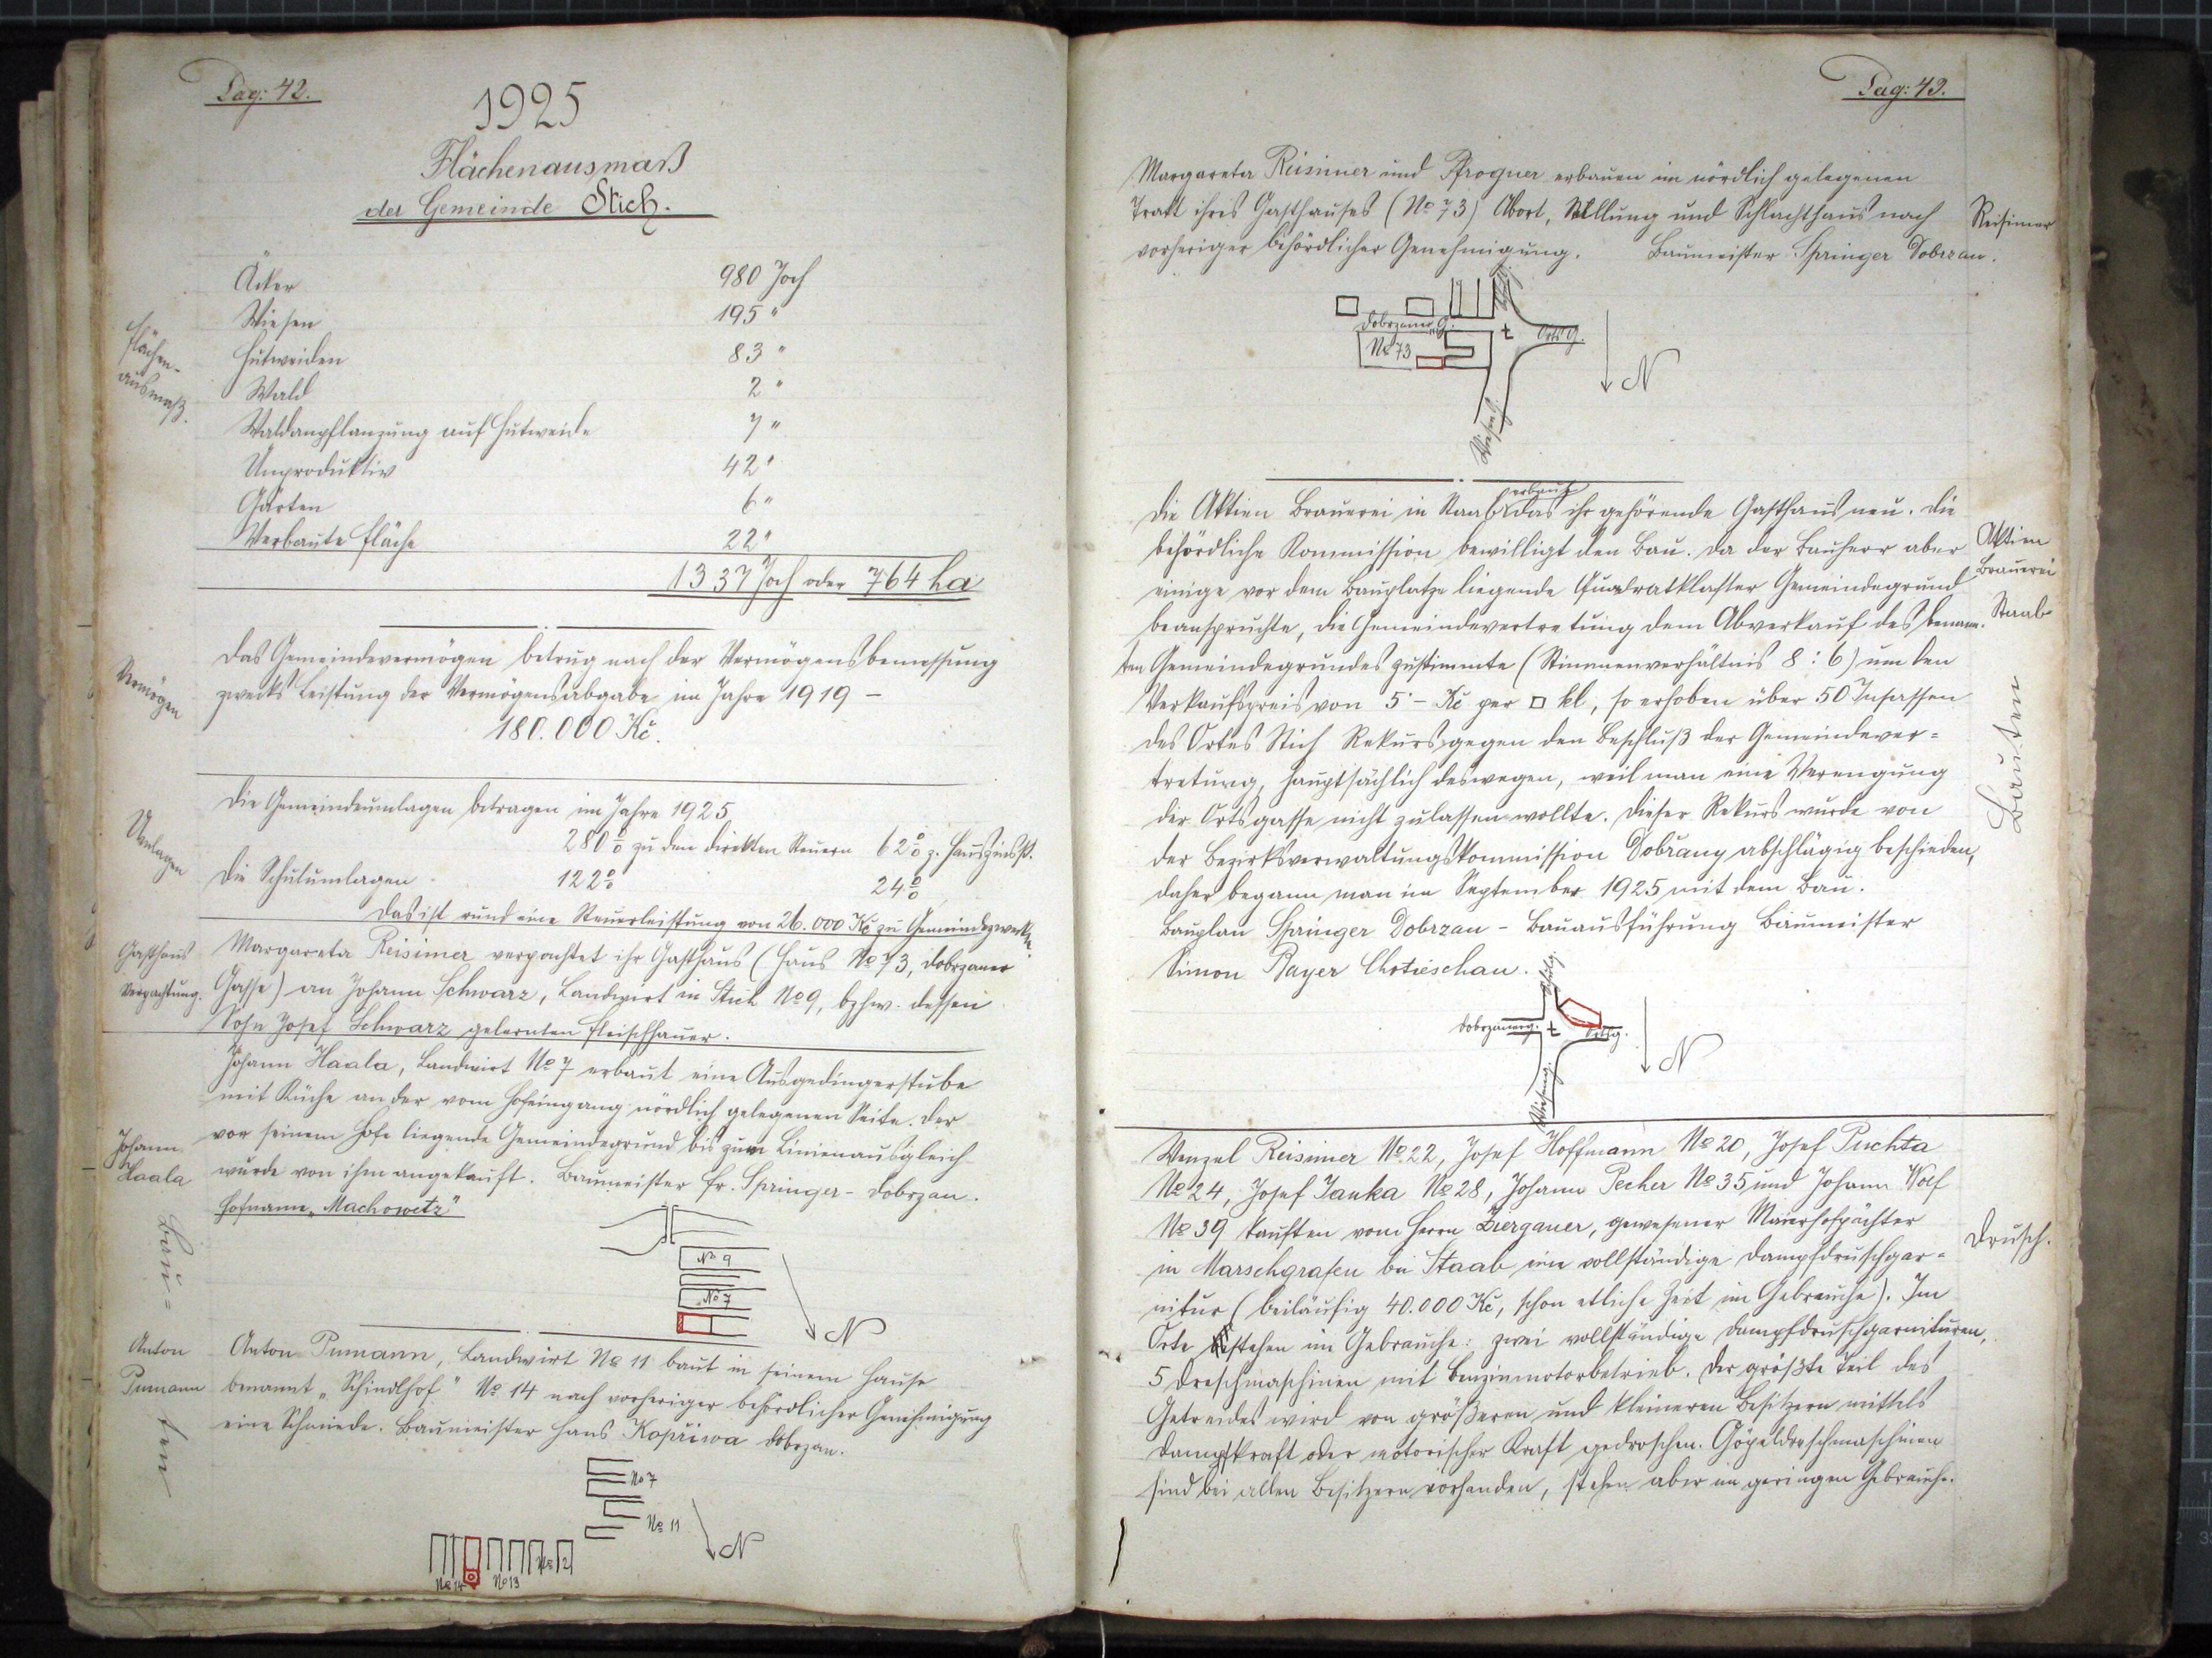 Pag: 42.
1925
Flächenausmaß
der Gemeinde Stich.
Flächen-
ausmaß.
Äcker 980 Joch
Wiesen 195 "
Hutweiden 83 "
Wald 2 "
Waldanpflanzung auf Hutweide 7 "
Unproduktiv 42 "
Gärten 6 "
Verbaute Fläche 22 "
1337 Joch oder 764 ha
Vermögen
Das Gemeindevermögen betrug nach der Vermögensbemessung
zwecks Leistung der Vermögensabgabe im Jahre 1919 –
180.000 Kč.
Umlagen
Die Gemeindeumlagen betragen im Jahre 1925
280% zu den direkten Steuern 62% z. Hauszinsst.
Die Schulumlagen 122% 24%
Das ist rund eine Steuerleistung von 26.000 Kč zu Gemeindezwecken.
Gasthaus
Verpachtung.
Margareta Reisimer verpachtet ihr Gasthaus (Haus № 73, Dobrzaner
Gasse) an Johann Schwarz, Landwirt in Stich № 9, bzhw. dessen
Sohn Josef Schwarz gelernten Fleischhauer.
Johann Haala, Landwirt № 7 erbaut eine Ausgedingerstube
mit Küche an der vom Hofeingang nördlich gelegenen Seite. Der
Johann
Haala
vor seinem Hofe liegende Gemeindegrund bis zum Linienausgleich
wurde von ihm angekauft. Baumeister Fr. Springer - Dobrzan.
Hofname „Machowetz"
Bau=
ten
№ 9
№ 7
N
Anton
Pumann
Anton Pumann, Landwirt № 11 baut in seinem Hause
benannt „Schindlhof" № 14 nach vorheriger behördlicher Genehmigung
eine Schmiede. Baumeister Hans Kopřiwa Dobrzan.
№ 7
№ 11
N
№ 14
№ 13
№ 12
Pag: 43.
Margareta Reisimer und Pfrogner erbauen im nördlich gelegenen
Trakt ihres Gasthauses (№ 73) Abort, Stallung und Schlachthaus nach
vorheriger behördlicher Genehmigung. Baumeister Springer Dobrzan.
Reisimer
Dobrzaner G.
№ 73
Ortsg.
Wieseng.
N
erbaut
Die Aktien Brauerei in Staab das ihr gehörende Gasthaus neu. Die
behördliche Kommission bewilligt den Bau. Da der Bauherr aber
einige vor dem Bauplatze liegende Quadratklafter Gemeindegrund
beanspruchte, die Gemeindevertretung dem Abverkauf des benann-
ten Gemeindegrundes zustimmte (Stimmenverhältnis 8 : 6) um den
Verkaufspreis von 5 – Kč per □ kl, so erhoben über 50 Insassen
des Ortes Stich Rekurs gegen den Beschluß der Gemeindever=
tretung, hauptsächlich deswegen, weil man eine Verengung
der Ortsgasse nicht zulassen wollte. Dieser Rekurs wurde von
der Bezirksverwaltungskommission Dobřany abschlägig beschieden,
daher begann man im September 1925 mit dem Bau.
Bauplan Springer Dobrzan – Bauausführung Baumeister
Simon Bayer Chotieschau.
Aktien
Brauerei
Staab
Bauten
Dobrzanerg.
Ortsg.
Wieseng.
N
Wenzel Reisimer № 22, Josef Hoffmann № 20, Josef Puchta
№ 24, Josef Janka № 28, Johann Pecher № 35 und Johann Wolf
№ 39 kauften vom Herrn Ziergauer, gewesener Maierhofpächter
in Marschgrafen bei Staab eine vollständige Dampfdruschgar=
nitur (beiläufig 40.000 Kč, schon etliche Zeit im Gebrauche). Im
Orte stehen im Gebrauche: zwei vollständige Dampfdruschgarnituren,
5 Dreschmaschinen mit Benzinmotorbetrieb. Der größte Teil des
Getreides wird von größeren und kleineren Besitzern mittels
Dampfkraft oder motorischer Kraft gedroschen. Göpeldreschmaschinen
sind bei allen Besitzern vorhanden, stehen aber im geringen Gebrauche.
Drusch.